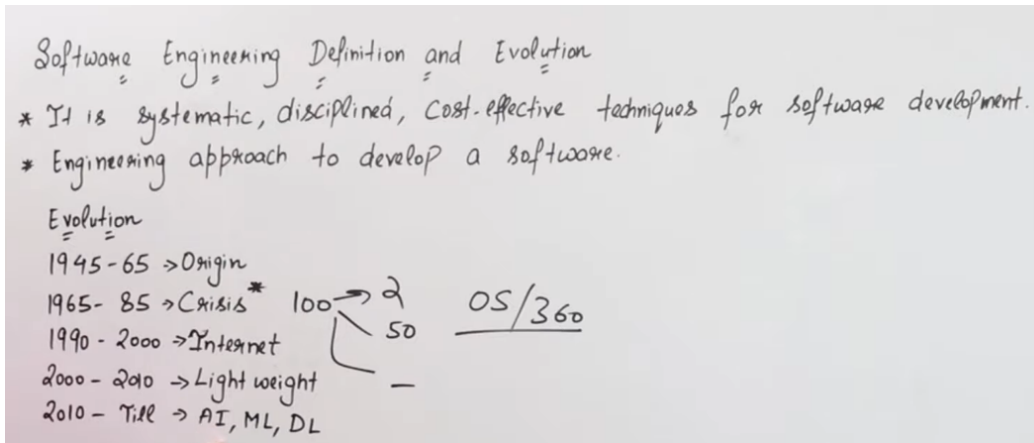 Software Engineering Definition and Evolution
* It is systematic, disciplined, cost-effective techniques for software development.
* Engineering approach to develop a software.
Evolution
1945-65 → Origin
1965-85 → Crisis* 100 → 2 OS/360
50
1990-2000 → Internet
2000-2010 → Light weight –
2010- Till → AI, ML, DL